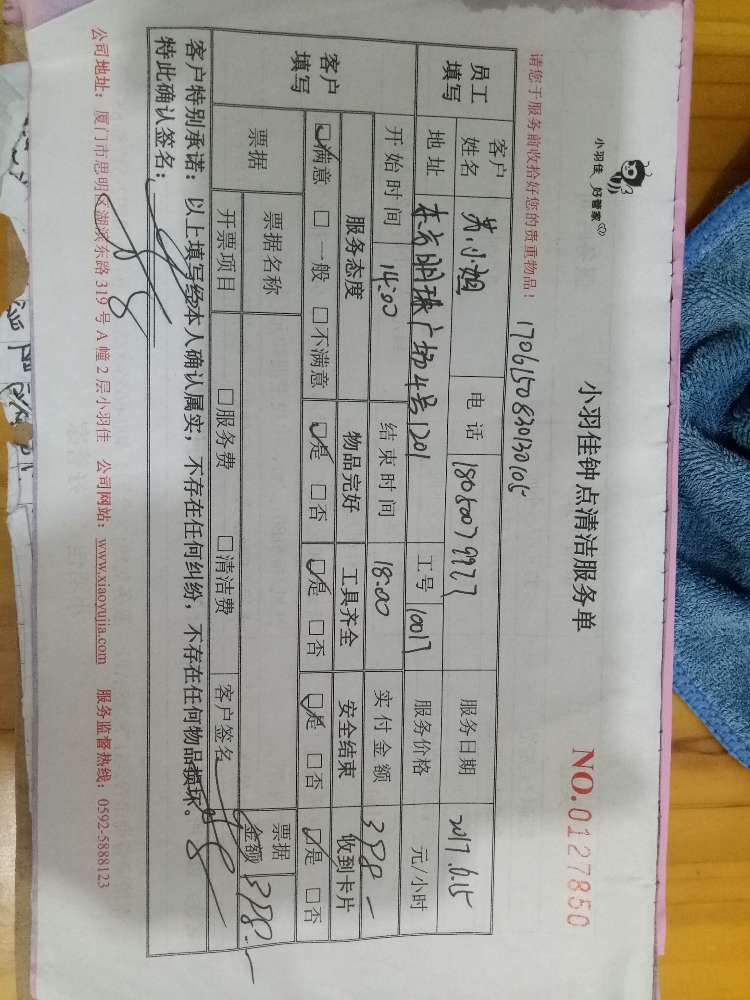 小羽佳 好管家
小羽佳钟点清洁服务单
NO.0127850
请您于服务前收拾好您的贵重物品！
1706150830130105
员工填写
客户姓名 苏小姐 电话 18060079927 服务日期 2017.6.15
地址 东方明珠广场4号1201 工号 10017 服务价格 元/小时
客户填写
开始时间 14:00 结束时间 18:00 实付金额
服务态度 物品完好 工具齐全 安全结束 收到卡片
☑满意 □一般 □不满意 ☑是 □否 ☑是 □否 ☑是 □否 ☑是 □否
票据 票据名称 票据金额
开票项目 □服务费 □清洁费 客户签名
客户特别承诺：以上填写经本人确认属实，不存在任何纠纷，不存在任何物品损坏。
特此确认签名：
公司地址：厦门市思明区湖滨东路319号A幢2层小羽佳 公司网站：www.xiaoyujia.com 服务监督热线：0592-5888123